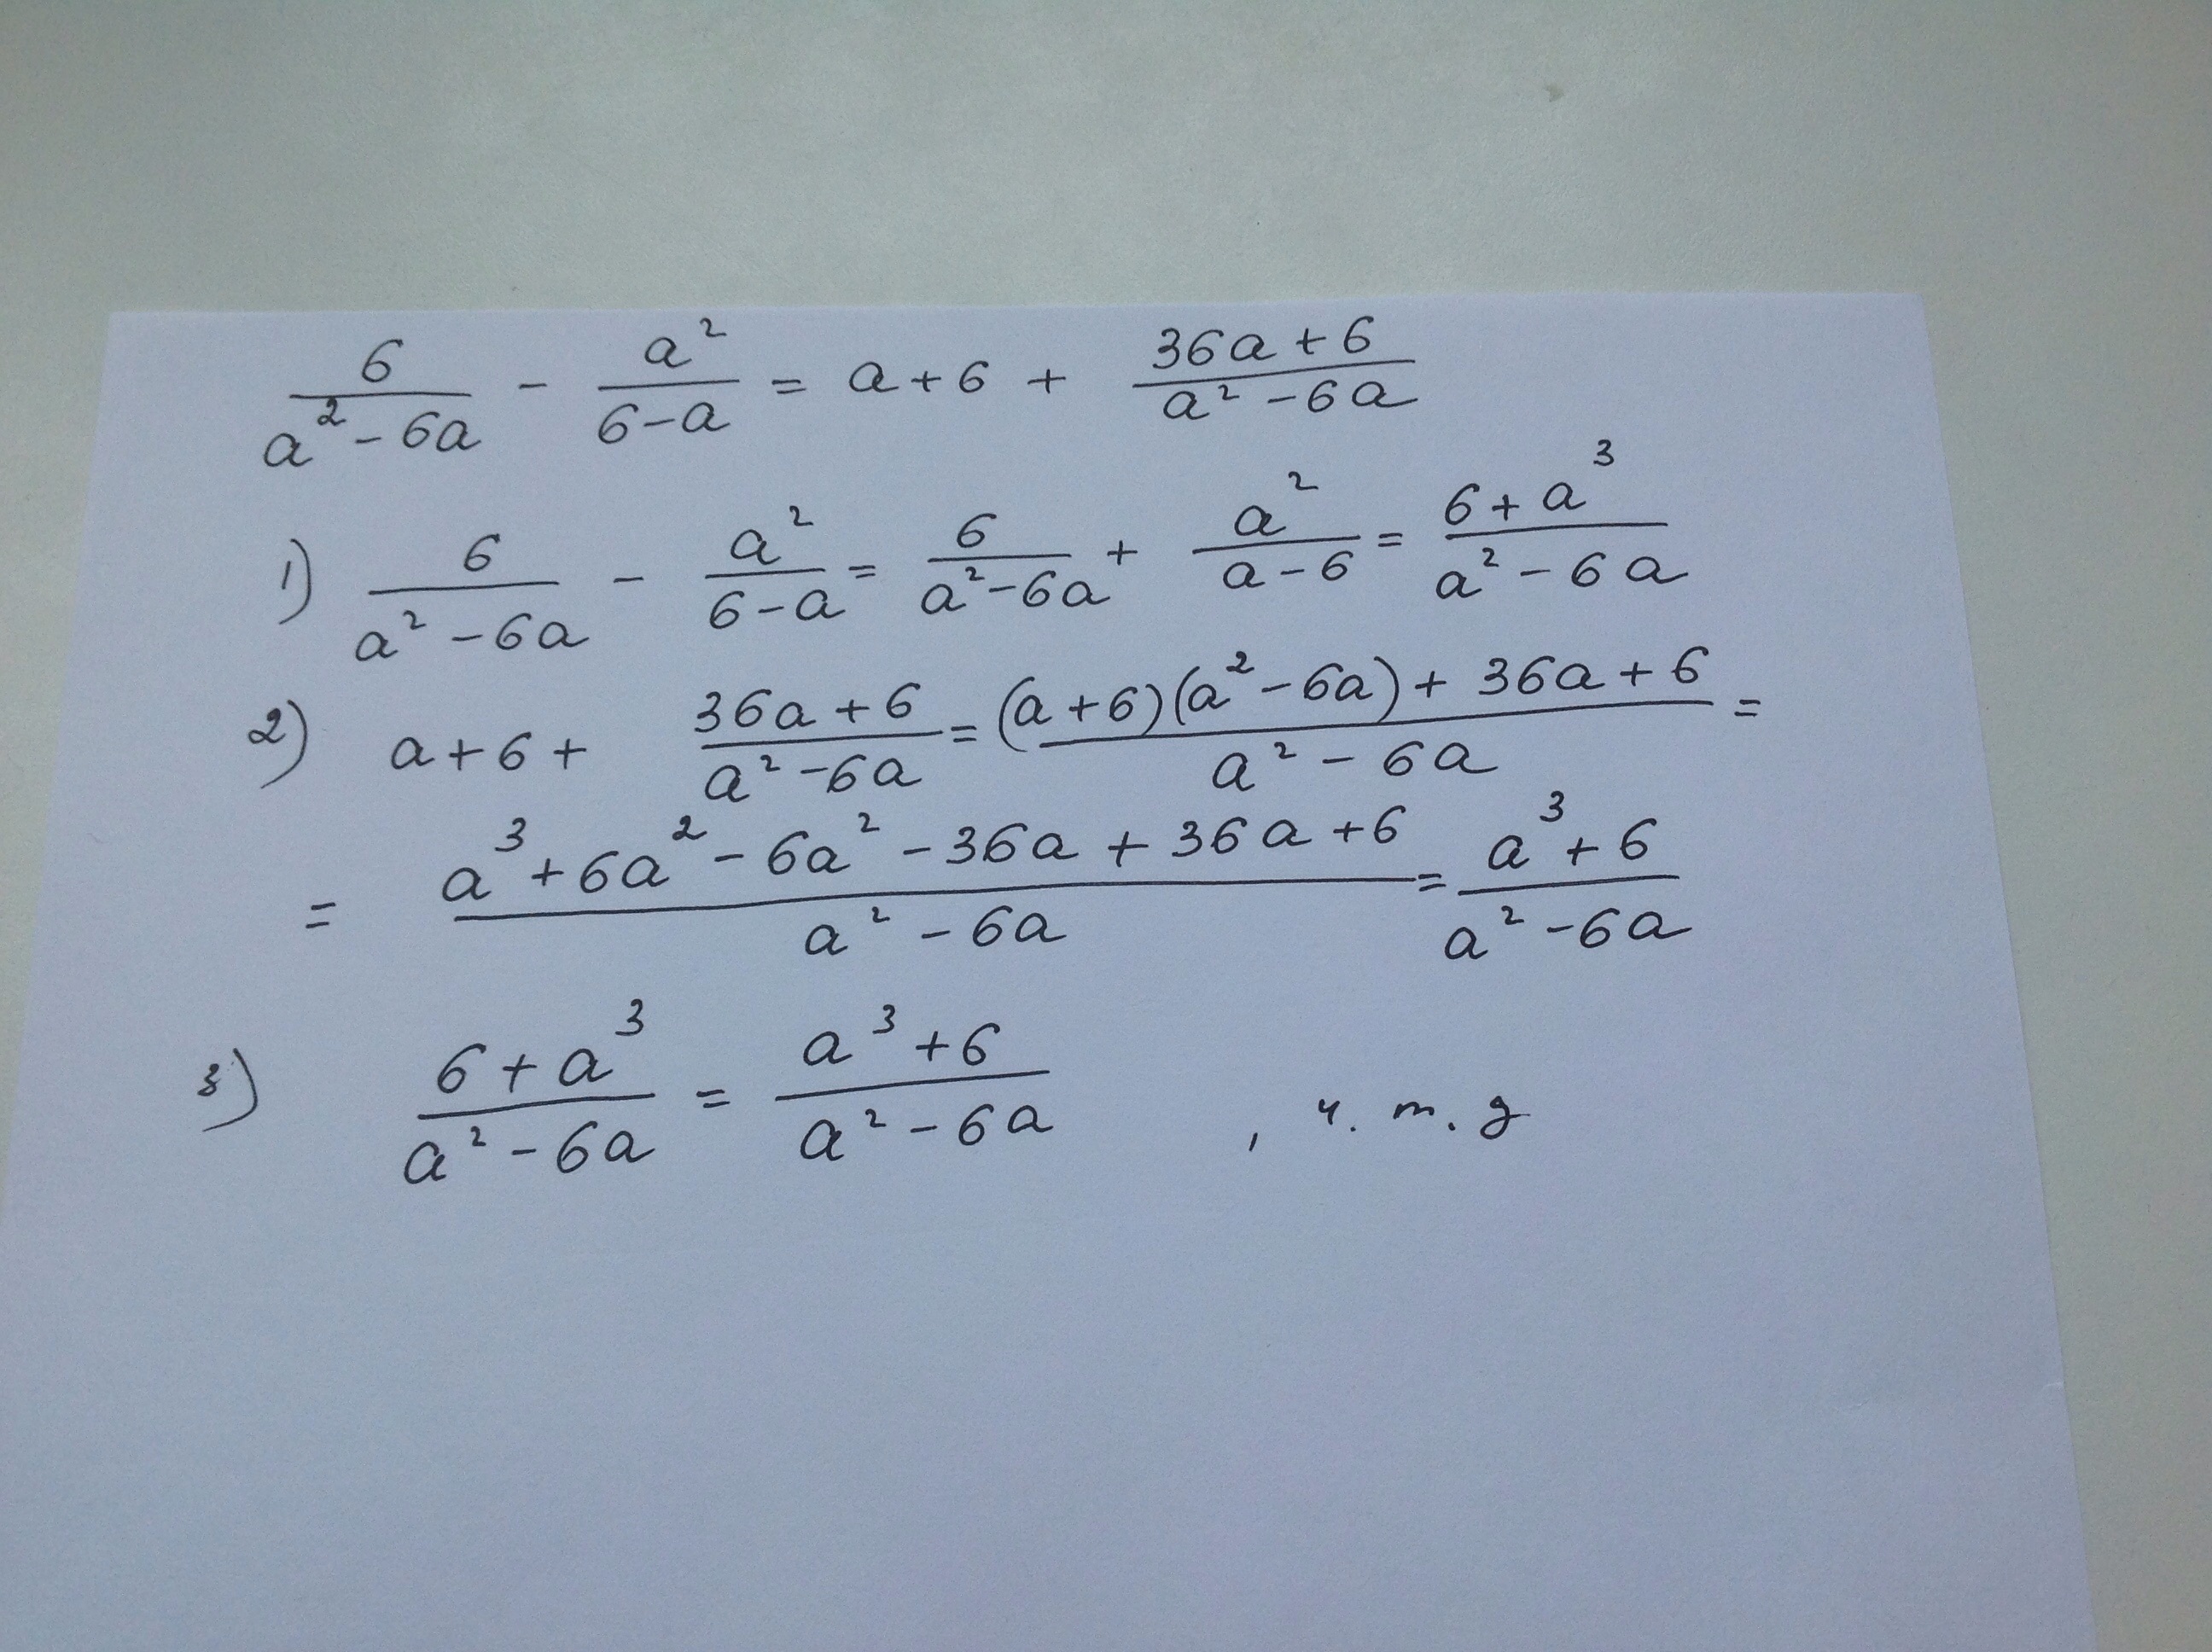 6/(a²-6a) - a²/(6-a) = a+6 + (36a+6)/(a²-6a)
1) 6/(a²-6a) - a²/(6-a) = 6/(a²-6a) + a²/(a-6) = (6+a³)/(a²-6a)
2) a+6+ (36a+6)/(a²-6a) = ((a+6)(a²-6a)+36a+6)/(a²-6a) =
= (a³+6a²-6a²-36a+36a+6)/(a²-6a) = (a³+6)/(a²-6a)
3) (6+a³)/(a²-6a) = (a³+6)/(a²-6a) , ч. т. д